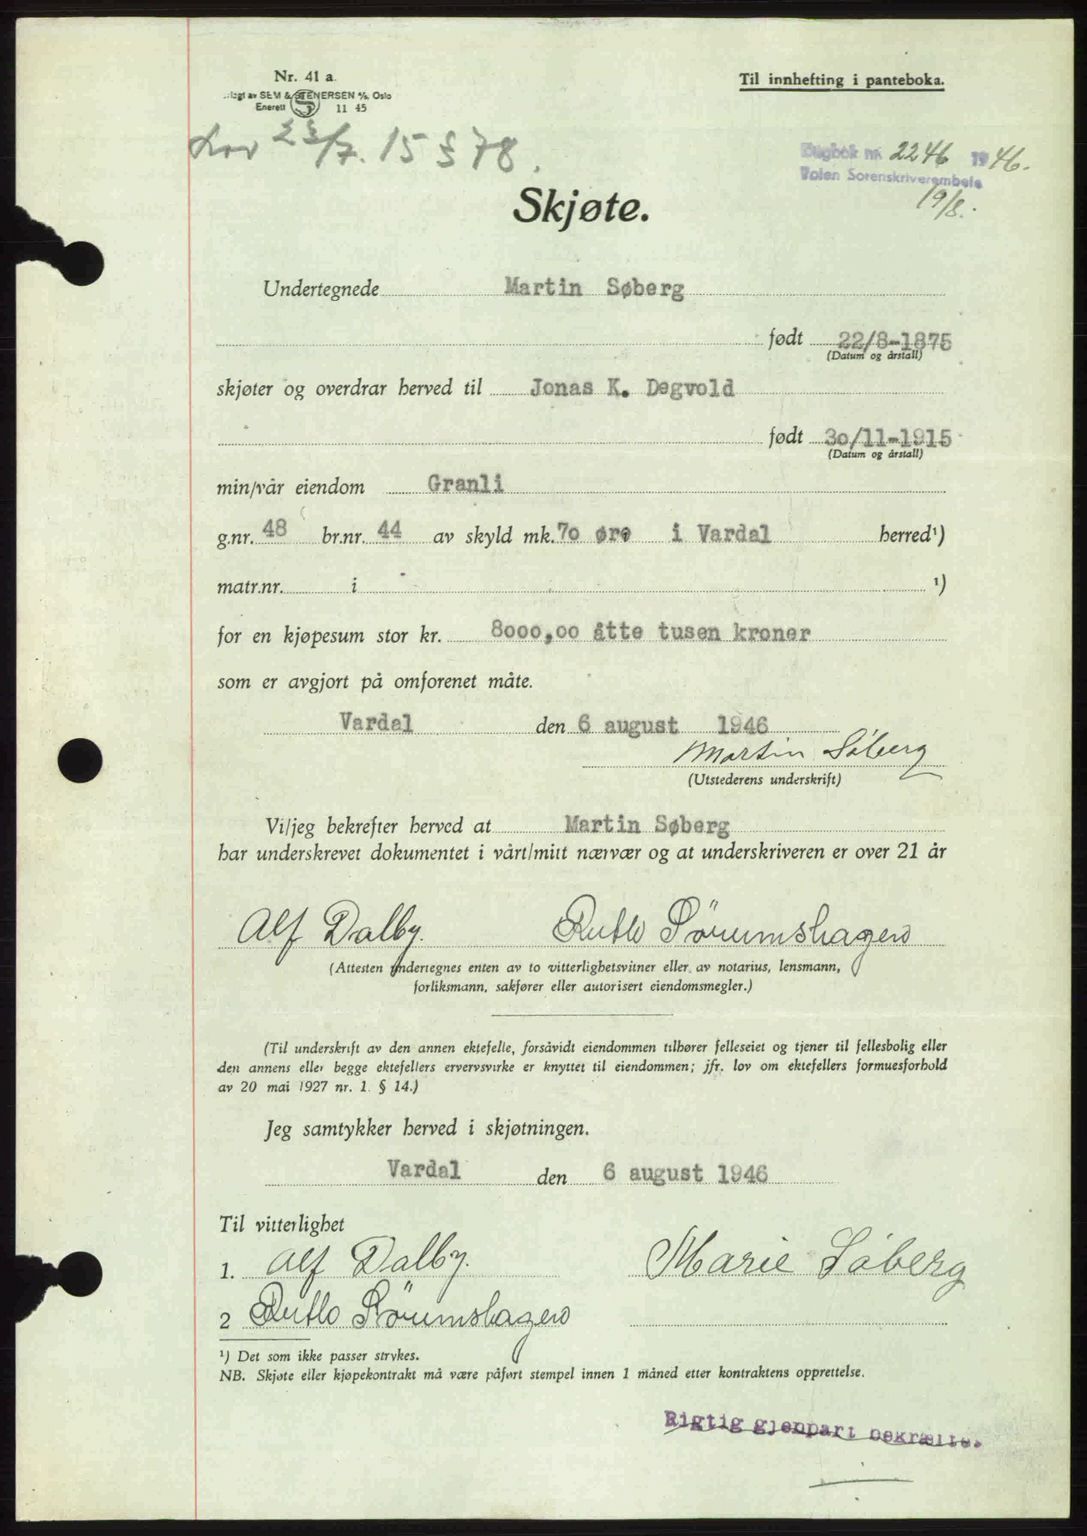 Nr. 41 a.
av SEM & STENERSEN A/S, Oslo
Enerett S 11 45
Til innhefting i panteboka.
Lov 23/7. 15 § 78.
Dagbok nr. 2246 1946.
Toten Sorenskriverembete
19/8.
Skjøte.
Undertegnede Martin Søberg
født 22/8-1875
(Datum og årstall)
skjøter og overdrar herved til Jonas K. Degvold
født 30/11-1915
(Datum og årstall)
min/vår eiendom Granli
g.nr. 48 br.nr. 44 av skyld mk. 70 øre i Vardal herred¹)
matr.nr. i ¹)
for en kjøpesum stor kr. 8000,00 åtte tusen kroner
som er avgjort på omforenet måte.
Vardal den 6 august 1946
Martin Søberg
(Utstederens underskrift)
Vi/jeg bekrefter herved at Martin Søberg
har underskrevet dokumentet i vårt/mitt nærvær og at underskriveren er over 21 år
Alf Dalby. Ruth Sørumshagen
(Attesten undertegnes enten av to vitterlighetsvitner eller av notarius, lensmann,
forliksmann, sakfører eller autorisert eiendomsmegler.)
(Til underskrift av den annen ektefelle, forsåvidt eiendommen tilhører felleseiet og tjener til fellesbolig eller
den annens eller begge ektefellers ervervsvirke er knyttet til eiendommen; jfr. lov om ektefellers formuesforhold
av 20 mai 1927 nr. 1 § 14.)
Jeg samtykker herved i skjøtningen.
Vardal den 6 august 1946
Til vitterlighet
1. Alf Dalby. Marie Søberg
2 Ruth Sørumshagen
¹) Det som ikke passer strykes.
NB. Skjøte eller kjøpekontrakt må være påført stempel innen 1 måned etter kontraktens opprettelse.
Rigtig gjenpart bekræftes.